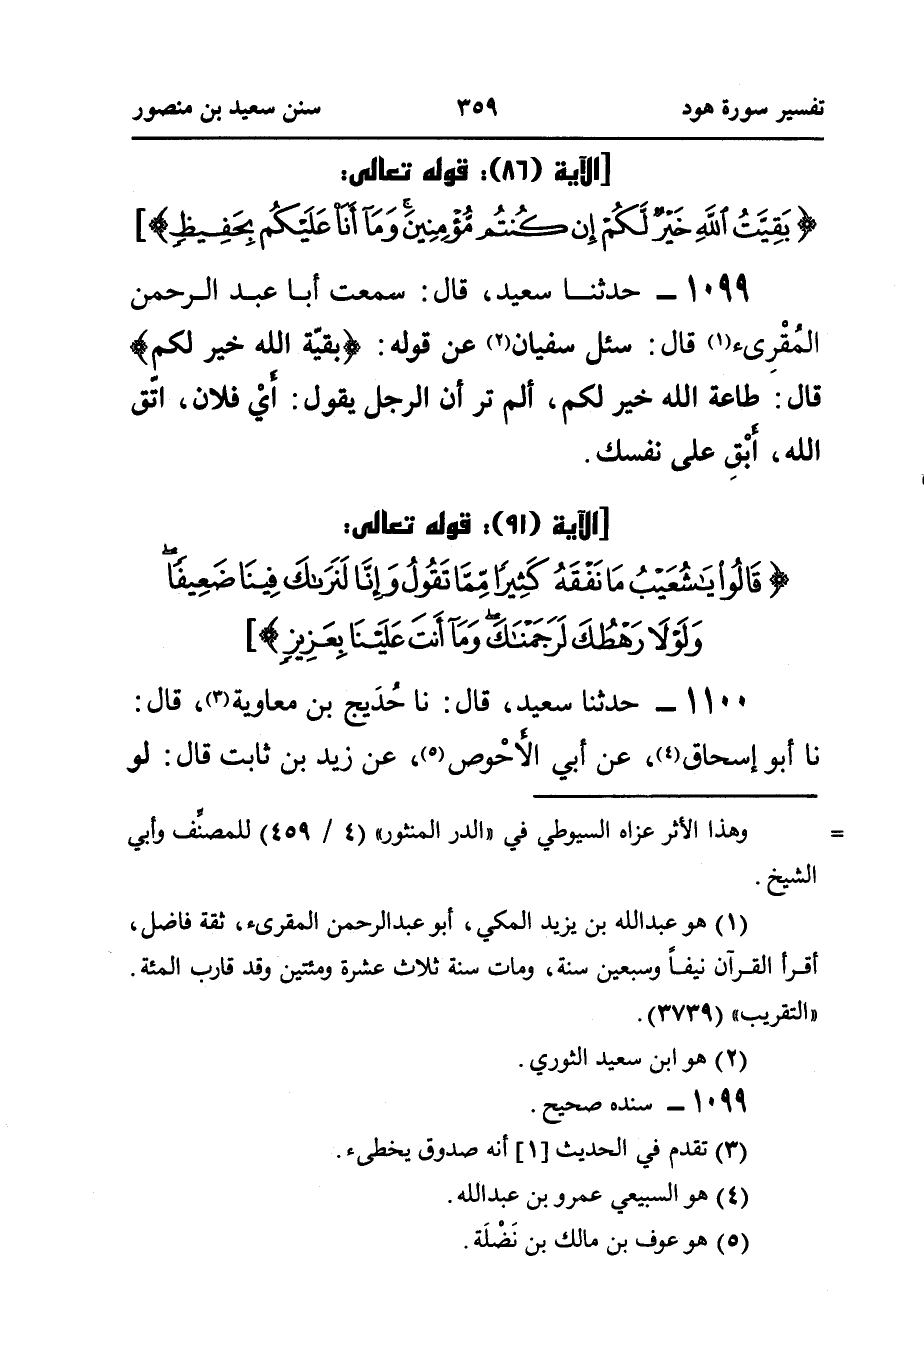 تفسير سورة هود ٣٥٩ سنن سعيد بن منصور
[الآية (٨٦): قوله تعالى:
﴿بَقِيَّتُ ٱللَّهِ خَيْرٌ لَّكُمْ إِن كُنتُم مُّؤْمِنِينَ ۚ وَمَآ أَنَا۠ عَلَيْكُم بِحَفِيظٍ﴾]
١٠٩٩ ـ حدثنـا سعيد، قال: سمعت أبـا عبـد الـرحمن
المُقْرِىء(١) قال: سئل سفيان(٢) عن قوله: ﴿بقيّة الله خير لكم﴾
قال: طاعة الله خير لكم، ألم تر أن الرجل يقول: أَيْ فلان، اتّق
الله، أَبْقِ على نفسك.
[الآية (٩١): قوله تعالى:
﴿قَالُوا۟ يَٰشُعَيْبُ مَا نَفْقَهُ كَثِيرًا مِّمَّا تَقُولُ وَإِنَّا لَنَرَىٰكَ فِينَا ضَعِيفًا ۖ
وَلَوْلَا رَهْطُكَ لَرَجَمْنَٰكَ ۖ وَمَآ أَنتَ عَلَيْنَا بِعَزِيزٍ﴾]
١١٠٠ ـ حدثنا سعيد، قال: نا حُدَيج بن معاوية(٣)، قال:
نا أبو إسحاق(٤)، عن أبي الأَحْوص(٥)، عن زيد بن ثابت قال: لو
= وهذا الأثر عزاه السيوطي في «الدر المنثور» (٤ / ٤٥٩) للمصنِّف وأبي
الشيخ.
(١) هو عبدالله بن يزيد المكي، أبو عبدالرحمن المقرىء، ثقة فاضل،
أقرأ القرآن نيفاً وسبعين سنة، ومات سنة ثلاث عشرة ومئتين وقد قارب المئة.
«التقريب» (٣٧٣٩).
(٢) هو ابن سعيد الثوري.
١٠٩٩ ـ سنده صحيح.
(٣) تقدم في الحديث [١] أنه صدوق يخطىء.
(٤) هو السبيعي عمرو بن عبدالله.
(٥) هو عوف بن مالك بن نَضْلَة.